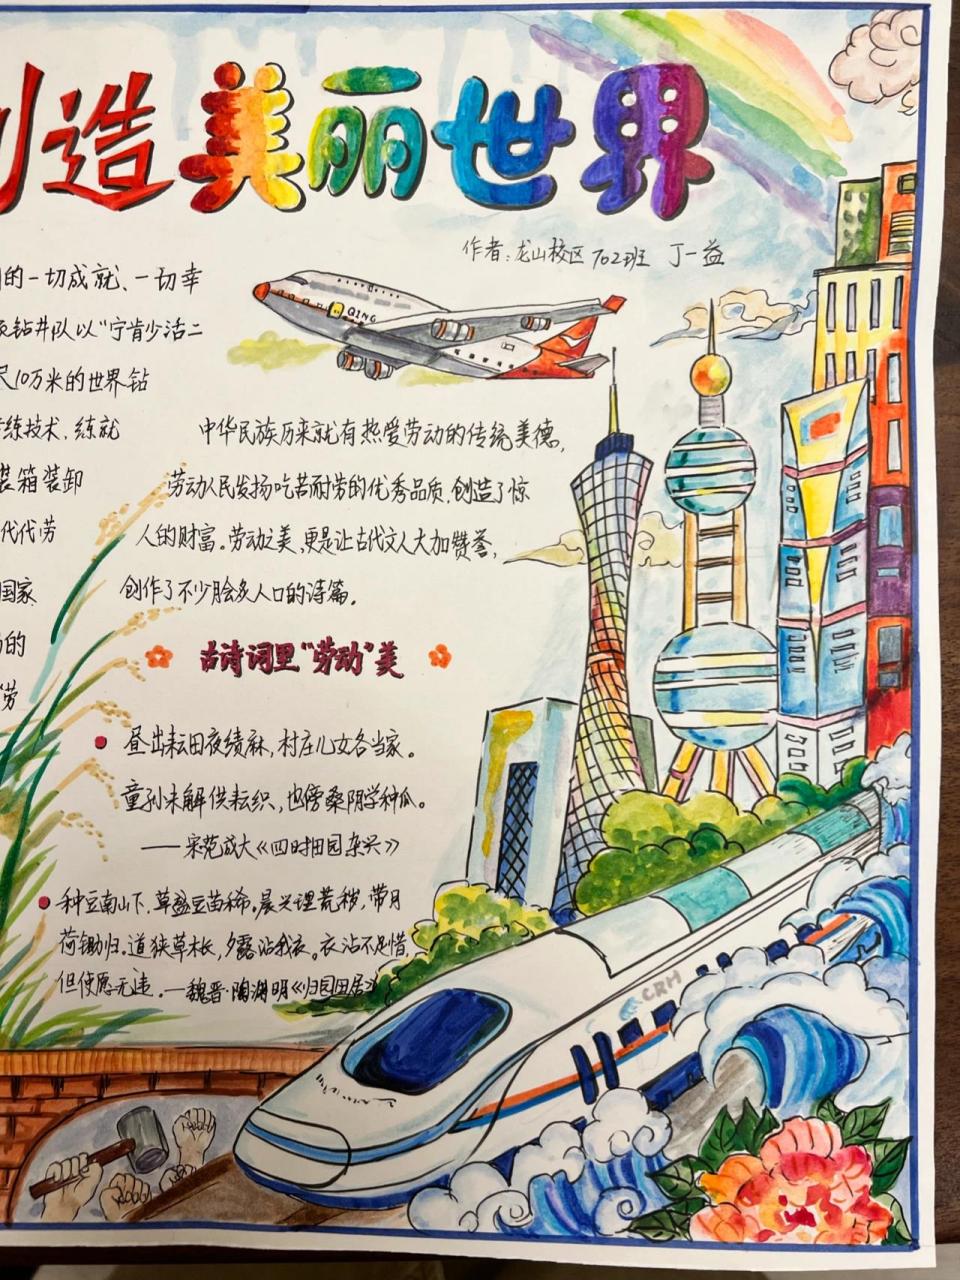 创造美丽世界
作者:龙山校区 702班 丁一益
的一切成就、一切幸
QING
钻井队以"宁肯少活二
尺10万米的世界钻
练技术,练就
中华民族历来就有热爱劳动的传统美德,
装箱装卸
劳动人民发扬吃苦耐劳的优秀品质,创造了惊
代代劳
人的财富。劳动之美,更是让古代文人大加赞誉,
国家
创作了不少脍炙人口的诗篇。
的
古诗词里"劳动"美
劳
昼出耘田夜绩麻,村庄儿女各当家。
童孙未解供耘织,也傍桑阴学种瓜。
——宋范成大《四时田园杂兴》
种豆南山下,草盛豆苗稀。晨兴理荒秽,带月
荷锄归。道狭草木长,夕露沾我衣。衣沾不足惜,
但使愿无违。—魏晋·陶渊明《归园田居》
CRH